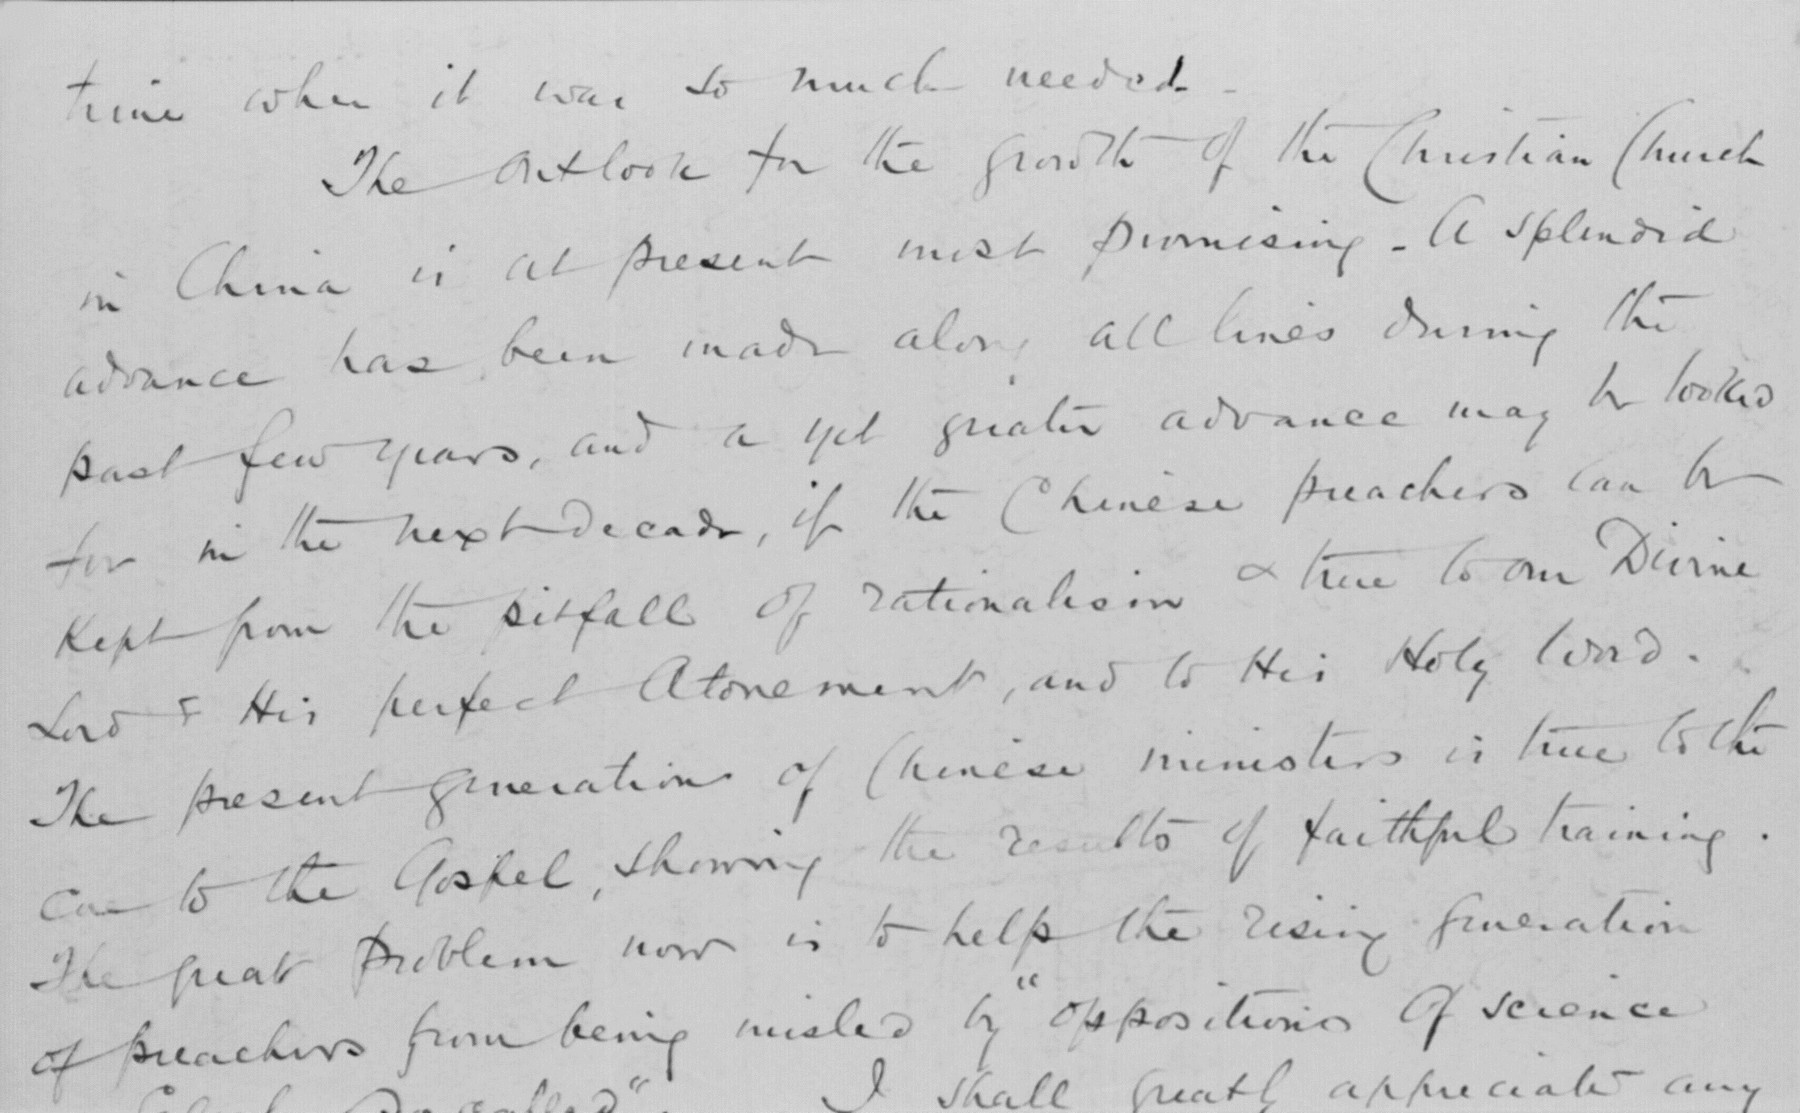 time when it was so much needed.
The outlook for the growth of the Christian Church
in China is at present most promising. A splendid
advance has been made along all lines during the
past few years, and a yet greater advance may be looked
for in the next decade, if the Chinese preachers can be
kept from the pitfall of rationalism & true to our Divine
Lord & His perfect Atonement, and to His Holy Word.
The present generation of Chinese ministers is true to the
core to the Gospel, showing the results of faithful training.
The great problem now is to help the rising generation
of preachers from being misled by "oppositions of science
falsely so called". I shall greatly appreciate any